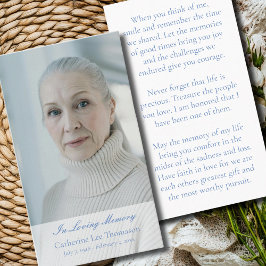 In Loving Memory
Catherine Lee Thomason
When you think of me,
smile and remember the time
we shared. Let the memories
of good times bring you joy
and the challenges we
endured give you courage.
Never forget that life is
precious. Treasure the people
you love. I am honored that I
have been one of them.
May the memory of my life
bring you comfort in the
midst of the sadness and loss.
Have faith in love for we are
each others greatest gift and
the most worthy pursuit.